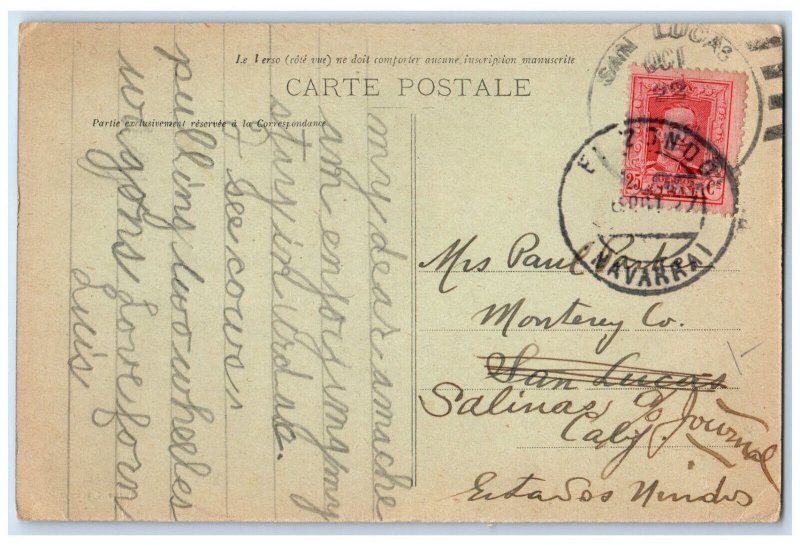 Le Verso (côté vue) ne doit comporter aucune inscription manuscrite
CARTE POSTALE
Partie exclusivement réservée à la Correspondance
my dear amache
am enjoising my
stay in Urdax.
I see cows
pulling two wheeles
wagons Love forn
Luis
SAN LUCAS
OCT
22
ELIZONDO
(NAVARRA)
25 Cs
Mrs Paul Porter
Monterey Co.
San Lucas
Salinas c/o Journal
Calif.
Estados Unidos